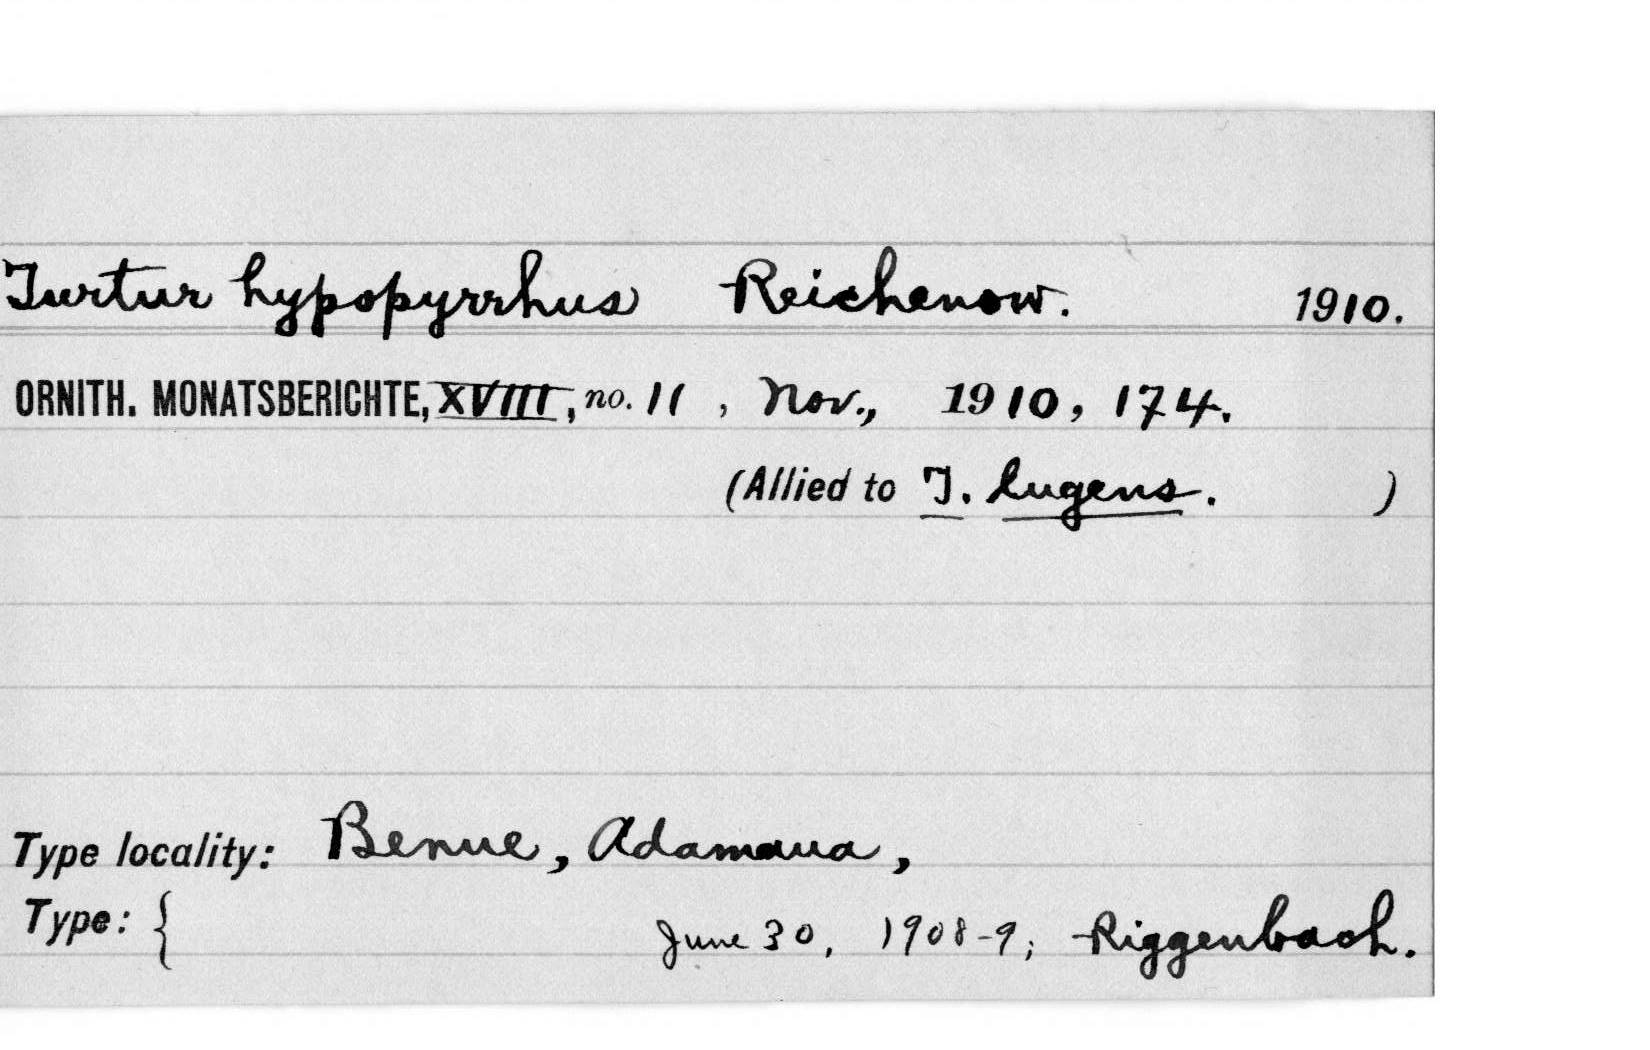 Turtur hypopyrrhus Reichenow. 1910.
ORNITH. MONATSBERICHTE, XVIII, no. 11, Nov., 1910, 174.
(Allied to T. lugens. )
Type locality: Benue, Adamaua,
Type: { June 30, 1908-9; Riggenbach.